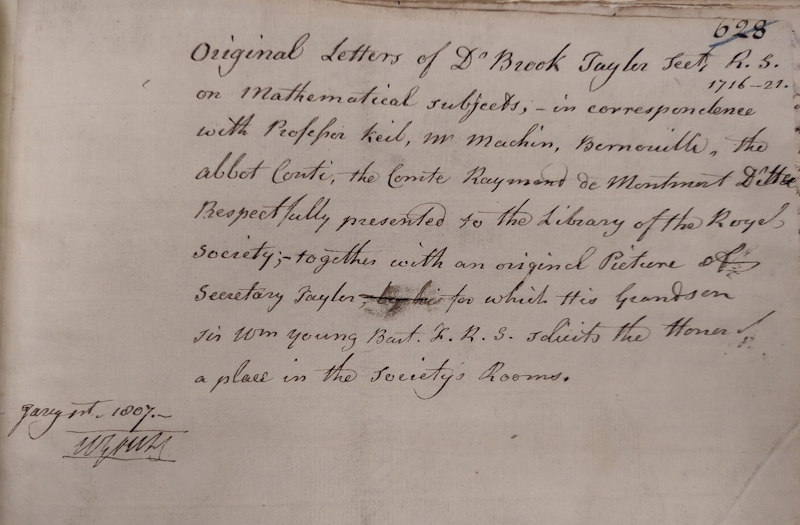 628
Original Letters of Dr Brook Taylor Sect; R. S.
1716-21.
on Mathematical subjects, - in correspondence
with Professor Keil, Mr Machin, Bernouilli, the
abbot Conti, the Comte Raymond de Montmort
Respectfully presented to the Library of the Royal
Society; - together with an original Picture of
Secretary Taylor, by his for which His Grandson
Sir Wm Young Bart. F. R. S. solicits the Honor of
a place in the Society's Rooms.
1807. -